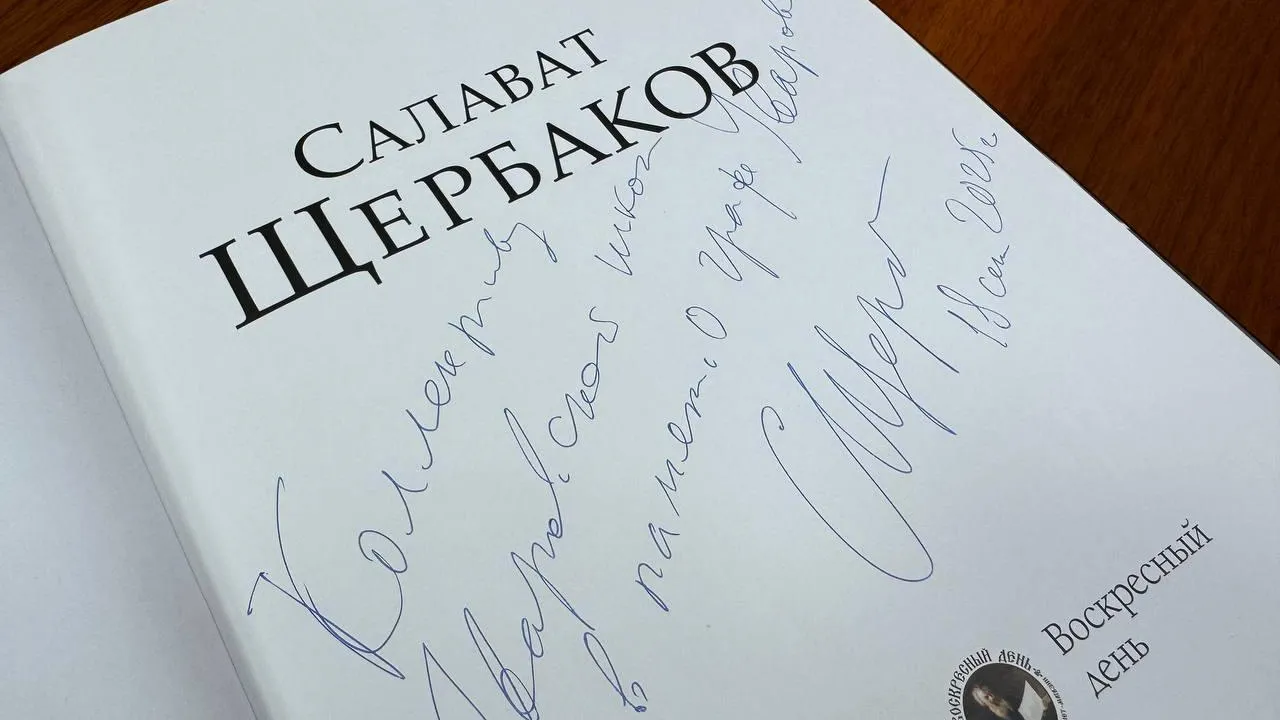 Салават
Щербаков
Коллективу
Уваровской школы
в память о графе Уварове
18 сен 2025г.
Воскресный
день
ВОСКРЕСНЫЙ ДЕНЬ